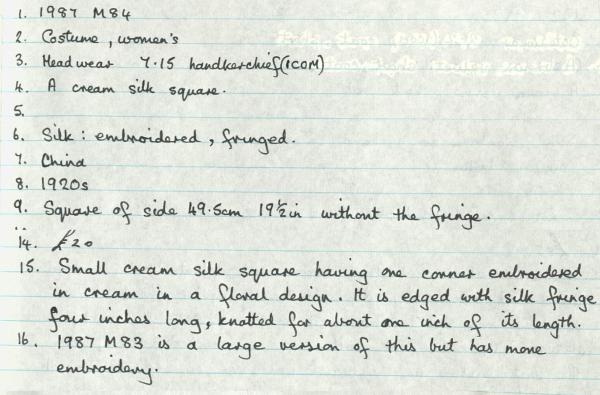 1. 1987 M84
2. Costume, women's
3. Headwear 7.15 handkerchief (ICOM)
4. A cream silk square.
5.
6. Silk: embroidered, fringed.
7. China
8. 1920s
9. Square of side 49.5cm 19½in without the fringe.
..
14. £20
15. Small cream silk square having one corner embroidered
in cream in a floral design. It is edged with silk fringe
four inches long, knotted for about one inch of its length.
16. 1987 M83 is a large version of this but has more
embroidery.